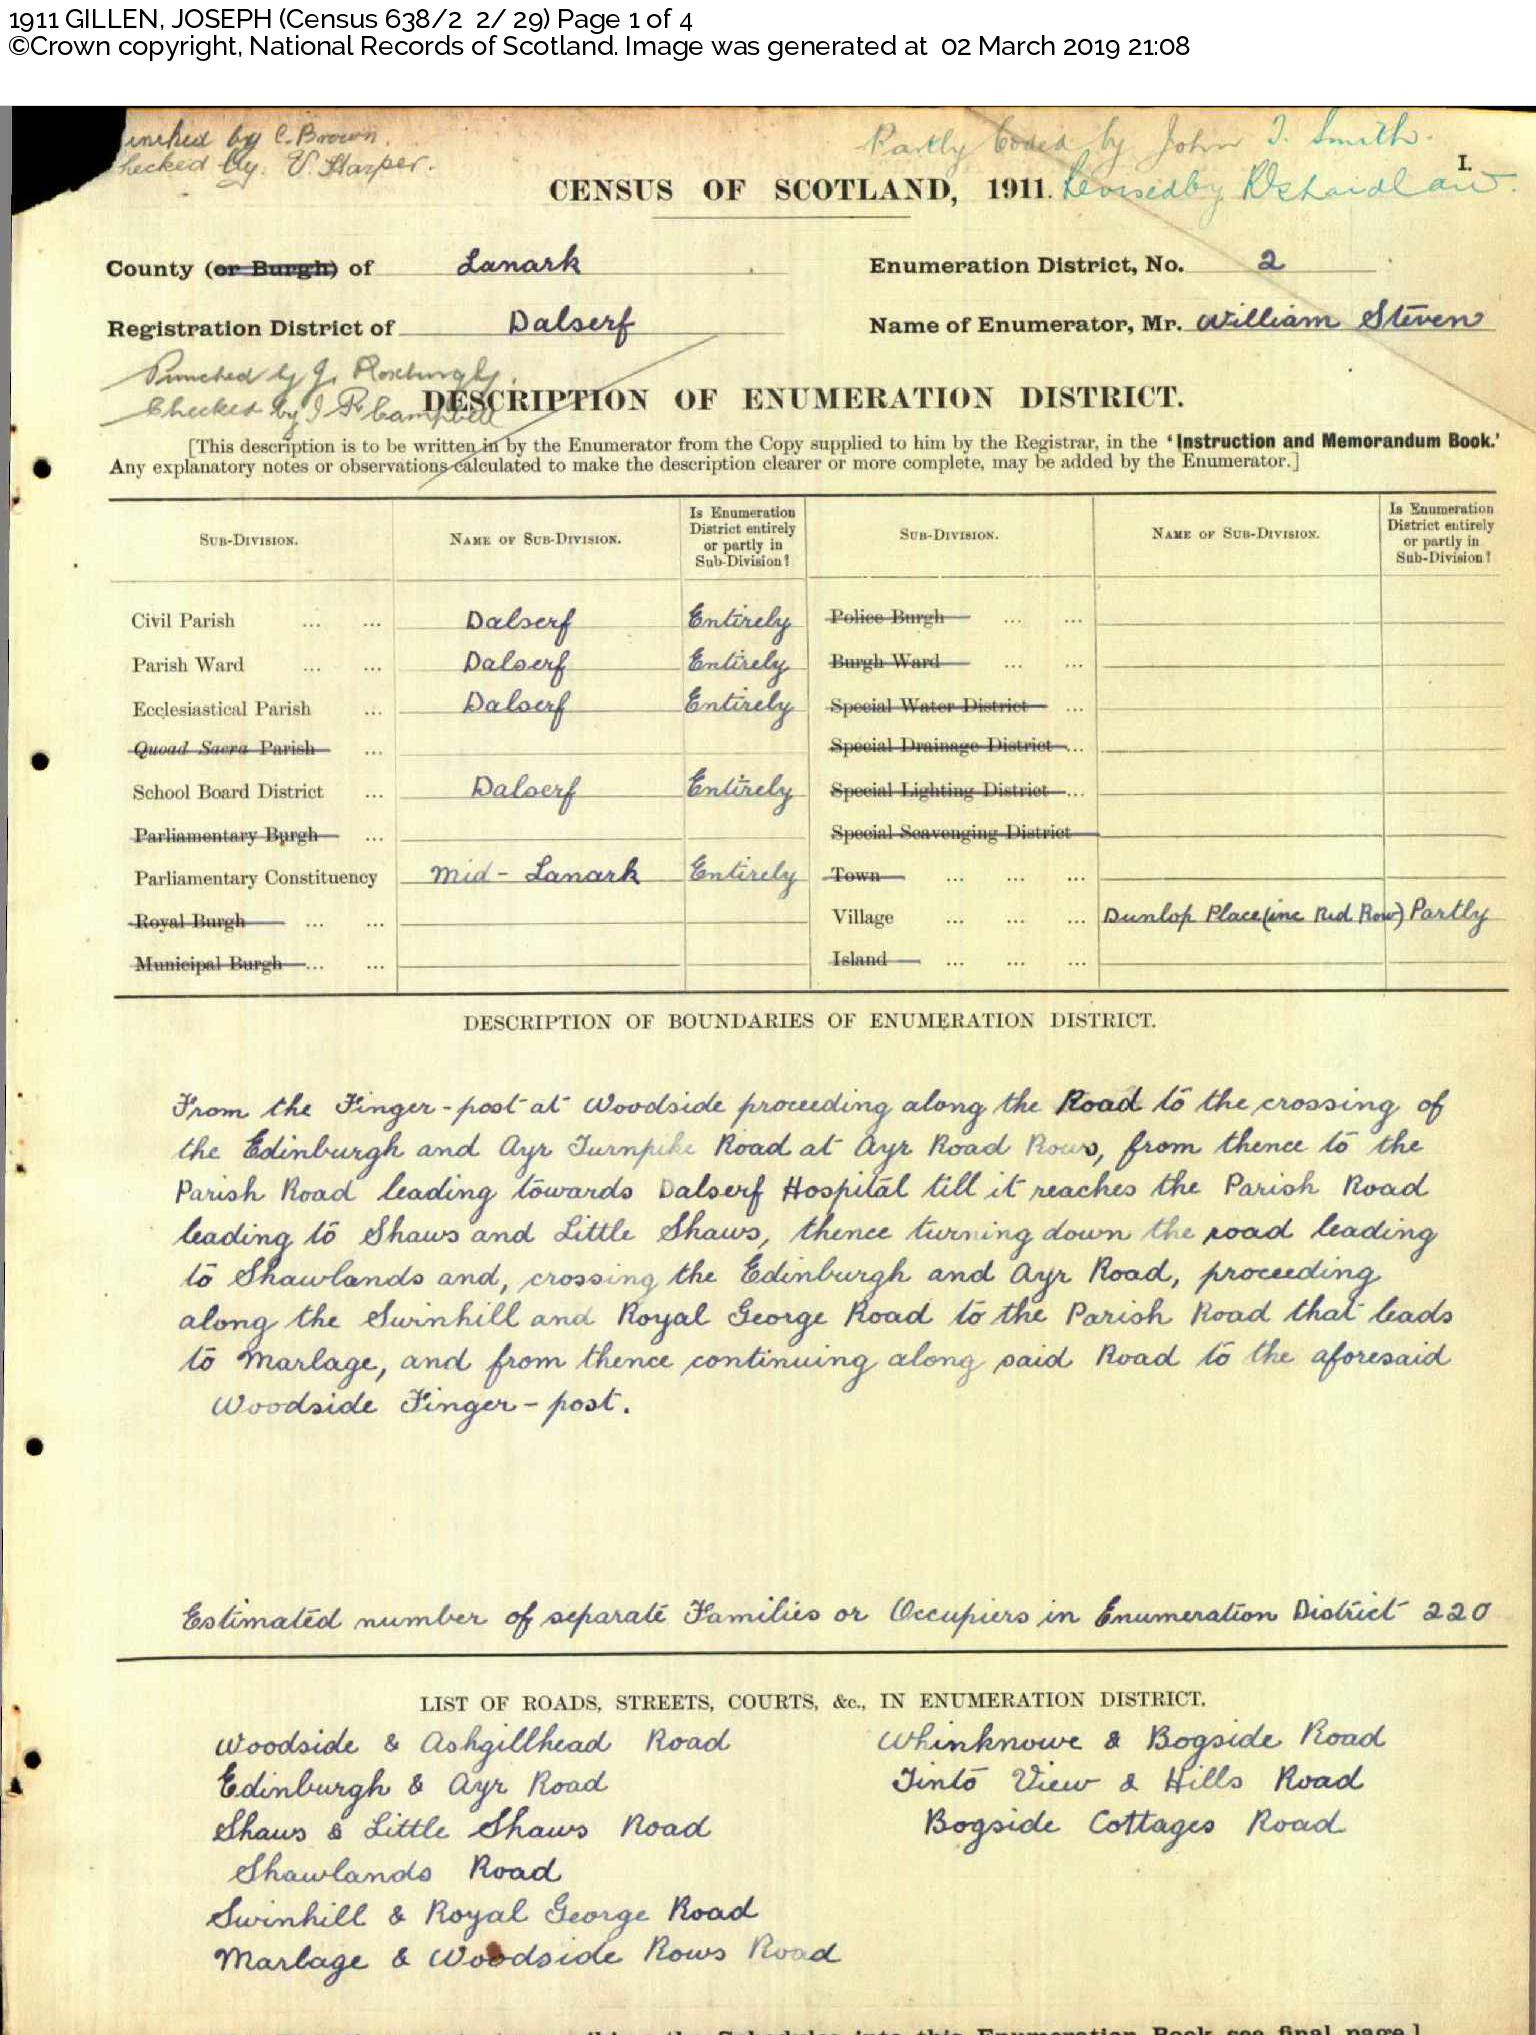 1911 GILLEN, JOSEPH (Census 638/2 2/ 29) Page 1 of 4
©Crown copyright, National Records of Scotland. Image was generated at 02 March 2019 21:08
by C. Brown.
hecked by. V. Harper.
Partly Coded by John T. Smith.
I.
CENSUS OF SCOTLAND, 1911.
Revised by
County (or Burgh) of Lanark
Enumeration District, No. 2
Registration District of Dalserf
Name of Enumerator, Mr. William Steven
Punched by J. Roxburgh.
Checked by J R Campbell
DESCRIPTION OF ENUMERATION DISTRICT.
[This description is to be written in by the Enumerator from the Copy supplied to him by the Registrar, in the 'Instruction and Memorandum Book.'
Any explanatory notes or observations calculated to make the description clearer or more complete, may be added by the Enumerator.]
SUB-DIVISION. NAME OF SUB-DIVISION. Is Enumeration District entirely or partly in Sub-Division? SUB-DIVISION. NAME OF SUB-DIVISION. Is Enumeration District entirely or partly in Sub-Division?
Civil Parish ... ... Dalserf Entirely Police Burgh ... ...
Parish Ward ... ... Dalserf Entirely Burgh Ward ... ...
Ecclesiastical Parish ... Dalserf Entirely Special Water District ...
Quoad Sacra Parish ... Special Drainage District ...
School Board District ... Dalserf Entirely Special Lighting District ...
Parliamentary Burgh ... Special Scavenging District
Parliamentary Constituency Mid-Lanark Entirely Town ... ... ...
Royal Burgh ... ... Village ... ... ... Dunlop Place (inc Red Row) Partly
Municipal Burgh ... ... Island ... ... ...
DESCRIPTION OF BOUNDARIES OF ENUMERATION DISTRICT.
From the Finger-post at Woodside proceeding along the Road to the crossing of
the Edinburgh and Ayr Turnpike Road at Ayr Road Rows, from thence to the
Parish Road leading towards Dalserf Hospital till it reaches the Parish Road
leading to Shaws and Little Shaws, thence turning down the road leading
to Shawlands and, crossing the Edinburgh and Ayr Road, proceeding
along the Swinhill and Royal George Road to the Parish Road that leads
to Marlage, and from thence continuing along said Road to the aforesaid
Woodside Finger-post.
Estimated number of separate Families or Occupiers in Enumeration District 220
LIST OF ROADS, STREETS, COURTS, &c., IN ENUMERATION DISTRICT.
Woodside & Ashgillhead Road
Edinburgh & Ayr Road
Shaws & Little Shaws Road
Shawlands Road
Swinhill & Royal George Road
Marlage & Woodside Rows Road
Whinknowe & Bogside Road
Tinto View & Hills Road
Bogside Cottages Road
the Schedules into this Enumeration Book see final page.]